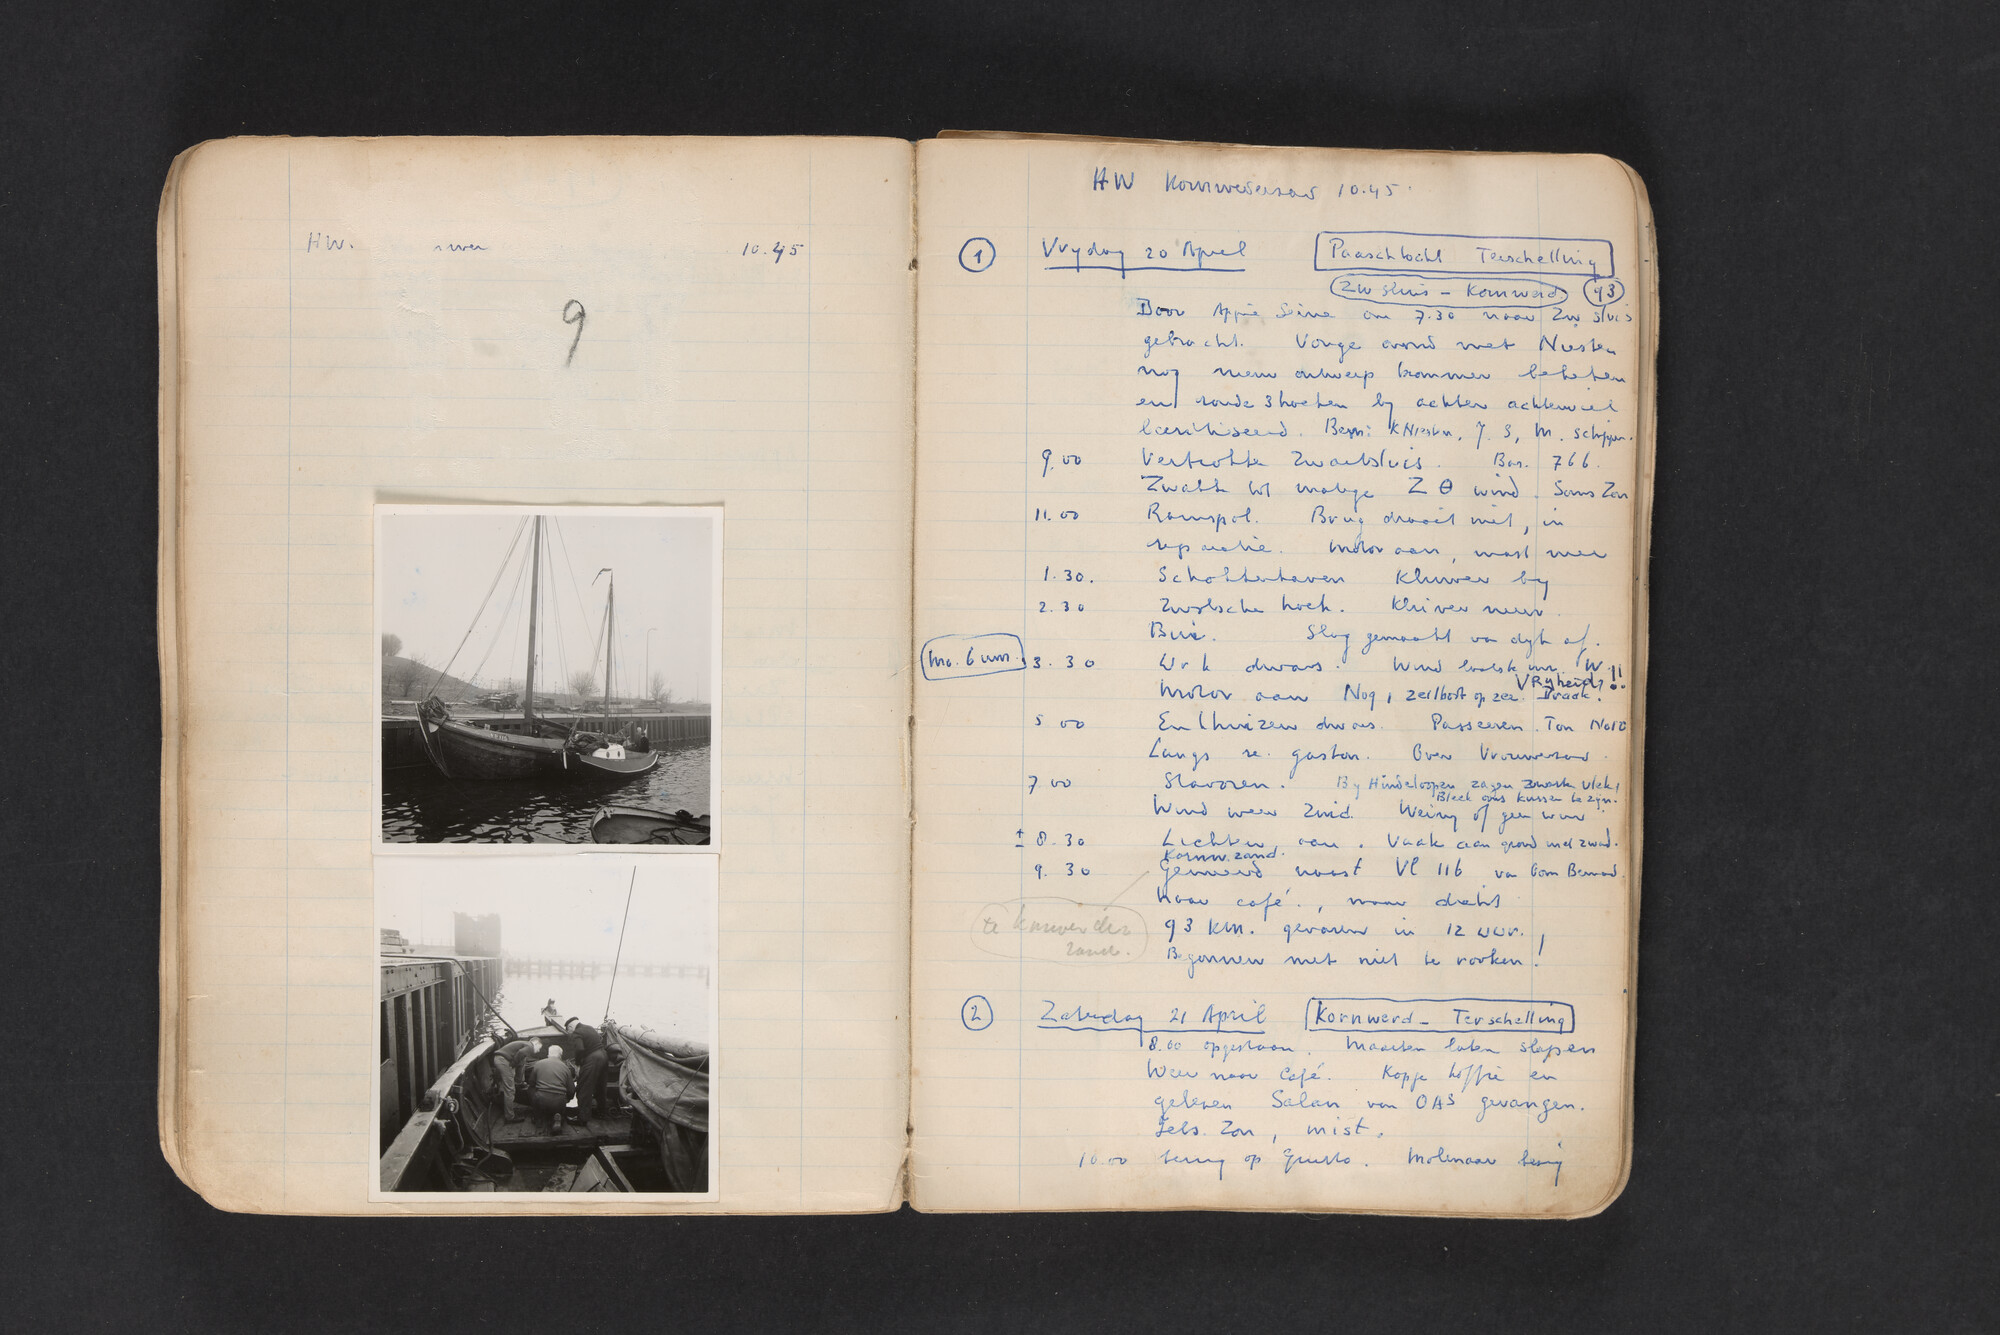 HW. 10.45
9
HW Kornwerderzand 10.45
1 Vrydag 20 April Paaschtocht Terschelling
Zw sluis - Kornwerd 93
Door Appie Sine om 7.30 naar Zw sluis
gebracht. Vorige avond met Niesten
nog nieuw ontwerp kommer bekeken
en ronde 3 hoeken by achter achterwiel
bekritiseerd. Bem: K Niesten, J. S, M. schipper.
9.00 Vertrokken Zwartsluis. Bar. 766.
Zwakke tot matige Z O wind. Soms Zon
11.00 Ramspol. Brug draait niet, in
reparatie. Motor aan, mast neer
1.30. Schokkerhaven Kluiver by
2.30 Zwolsche hoek. Kluiver neer.
Bui. Slag gemaakt van dyk af.
Mo. 6 uur. 3.30 Urk dwars. Wind laatste uur W.!!
Motor aan Nog 1 zeilboot op zee. Draak! Vryheid?
5 00 Enkhuizen dwars. Passeeren Ton No 10
Langs re. gaston. Over Vrouwezand.
7 00 Stavoren. By Hindeloopen zagen zwarte vlek!
Bleek ons kussen te zyn.
Wind weer Zuid. Weinig of geen wind
± 8.30 Lichten aan. Vaak aan grond met zwaard.
Kornw. zand.
9.30 Gemeerd naast VL 116 van Oom Bernard.
Naar café, maar dicht
te Kornwerder
zand.
93 km. gevaren in 12 uur.
Begonnen met niet te rooken!
2 Zaterdag 21 April Kornwerd - Terschelling
8.00 opgestaan. Maarten laten slapen
Weer naar Café. Kopje koffie en
gelezen Salan van OAS gevangen.
Zon, mist.
10.00 terug op Molenaar bezig